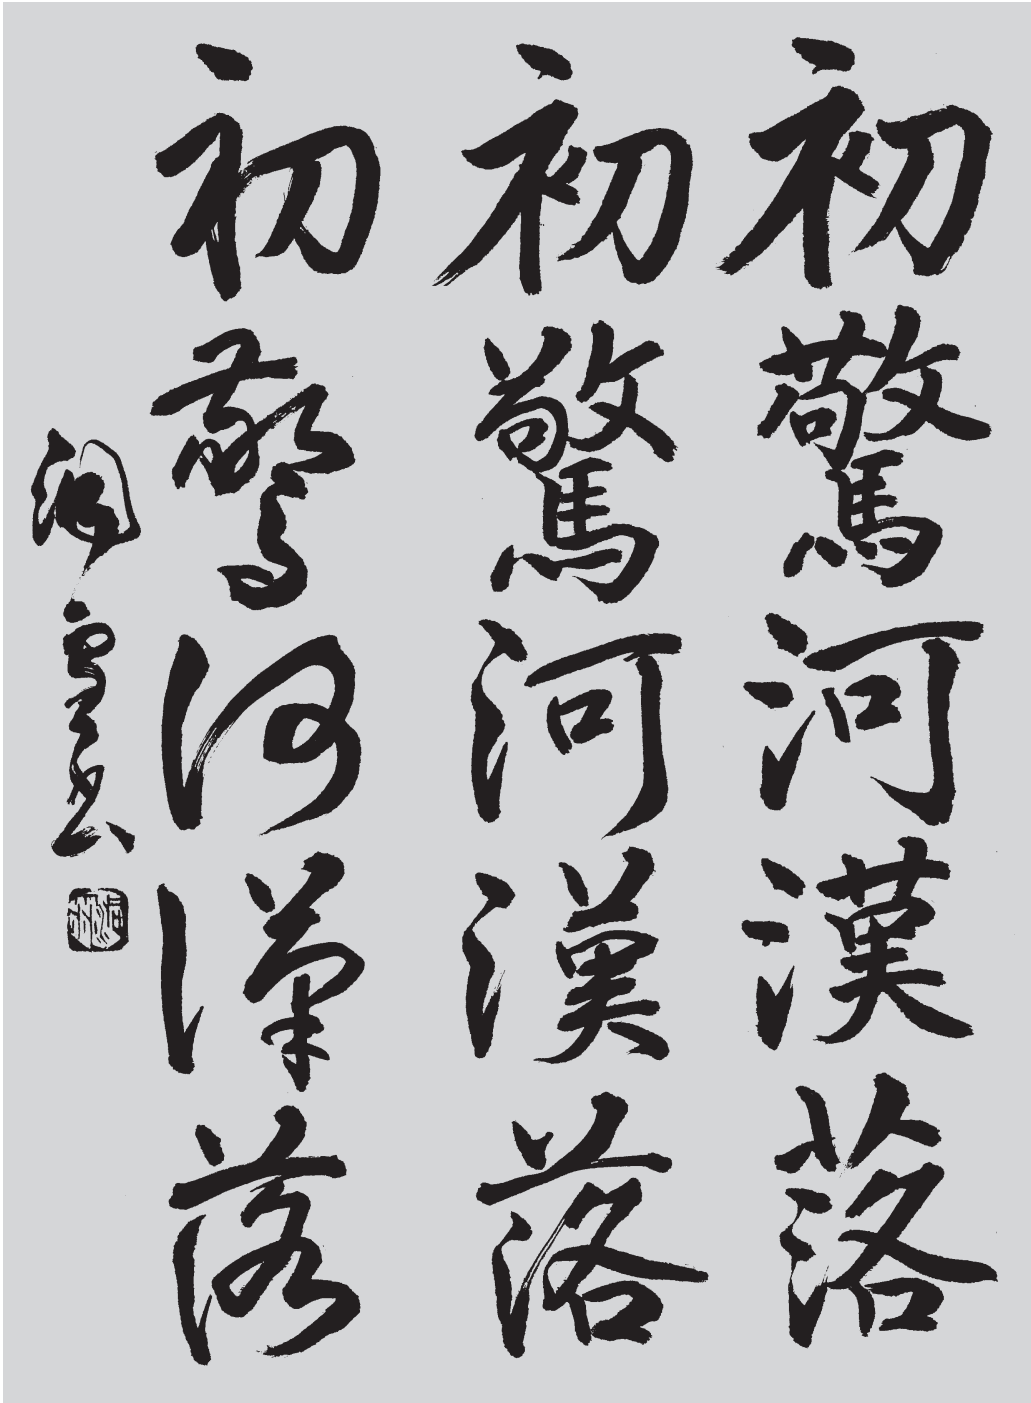 初驚河漢落
初驚河漢落
初驚河漢落
洞雪書